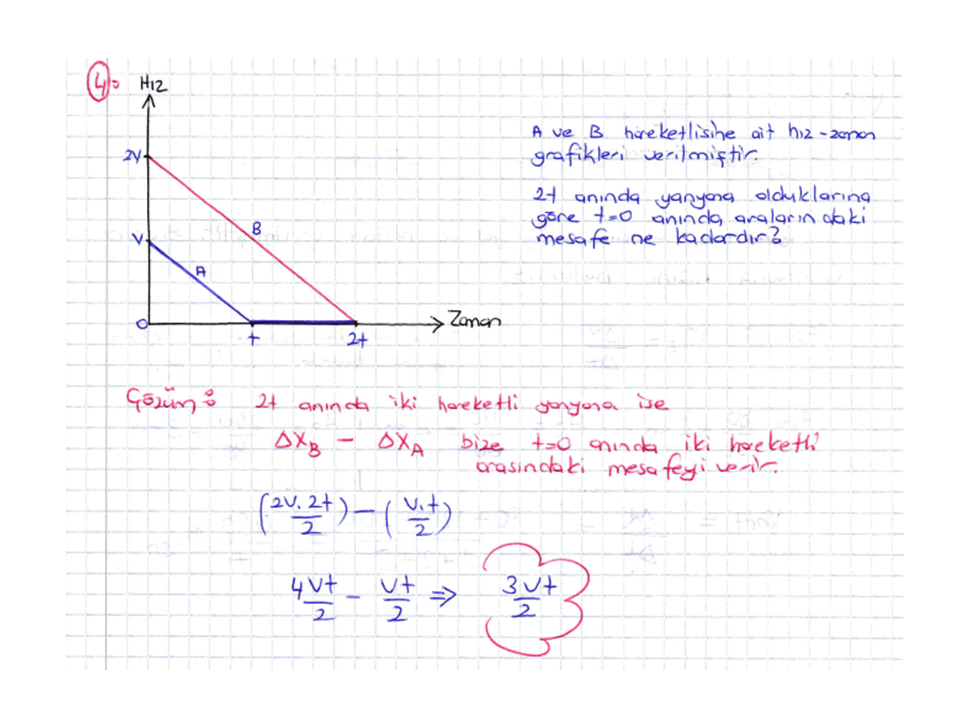 4)° Hız
2V
V
0
B
A
t
2t
Zaman
A ve B hareketlisine ait hız-zaman
grafikleri verilmiştir.
2t anında yanyana olduklarına
göre t=0 anında aralarındaki
mesafe ne kadardır?
Çözüm: 2t anında iki hareketli yanyana ise
ΔXB - ΔXA bize t=0 anında iki hareketli
arasındaki mesafeyi verir.
(2V.2t/2) - (V.t/2)
4Vt/2 - Vt/2 ⇒ 3Vt/2